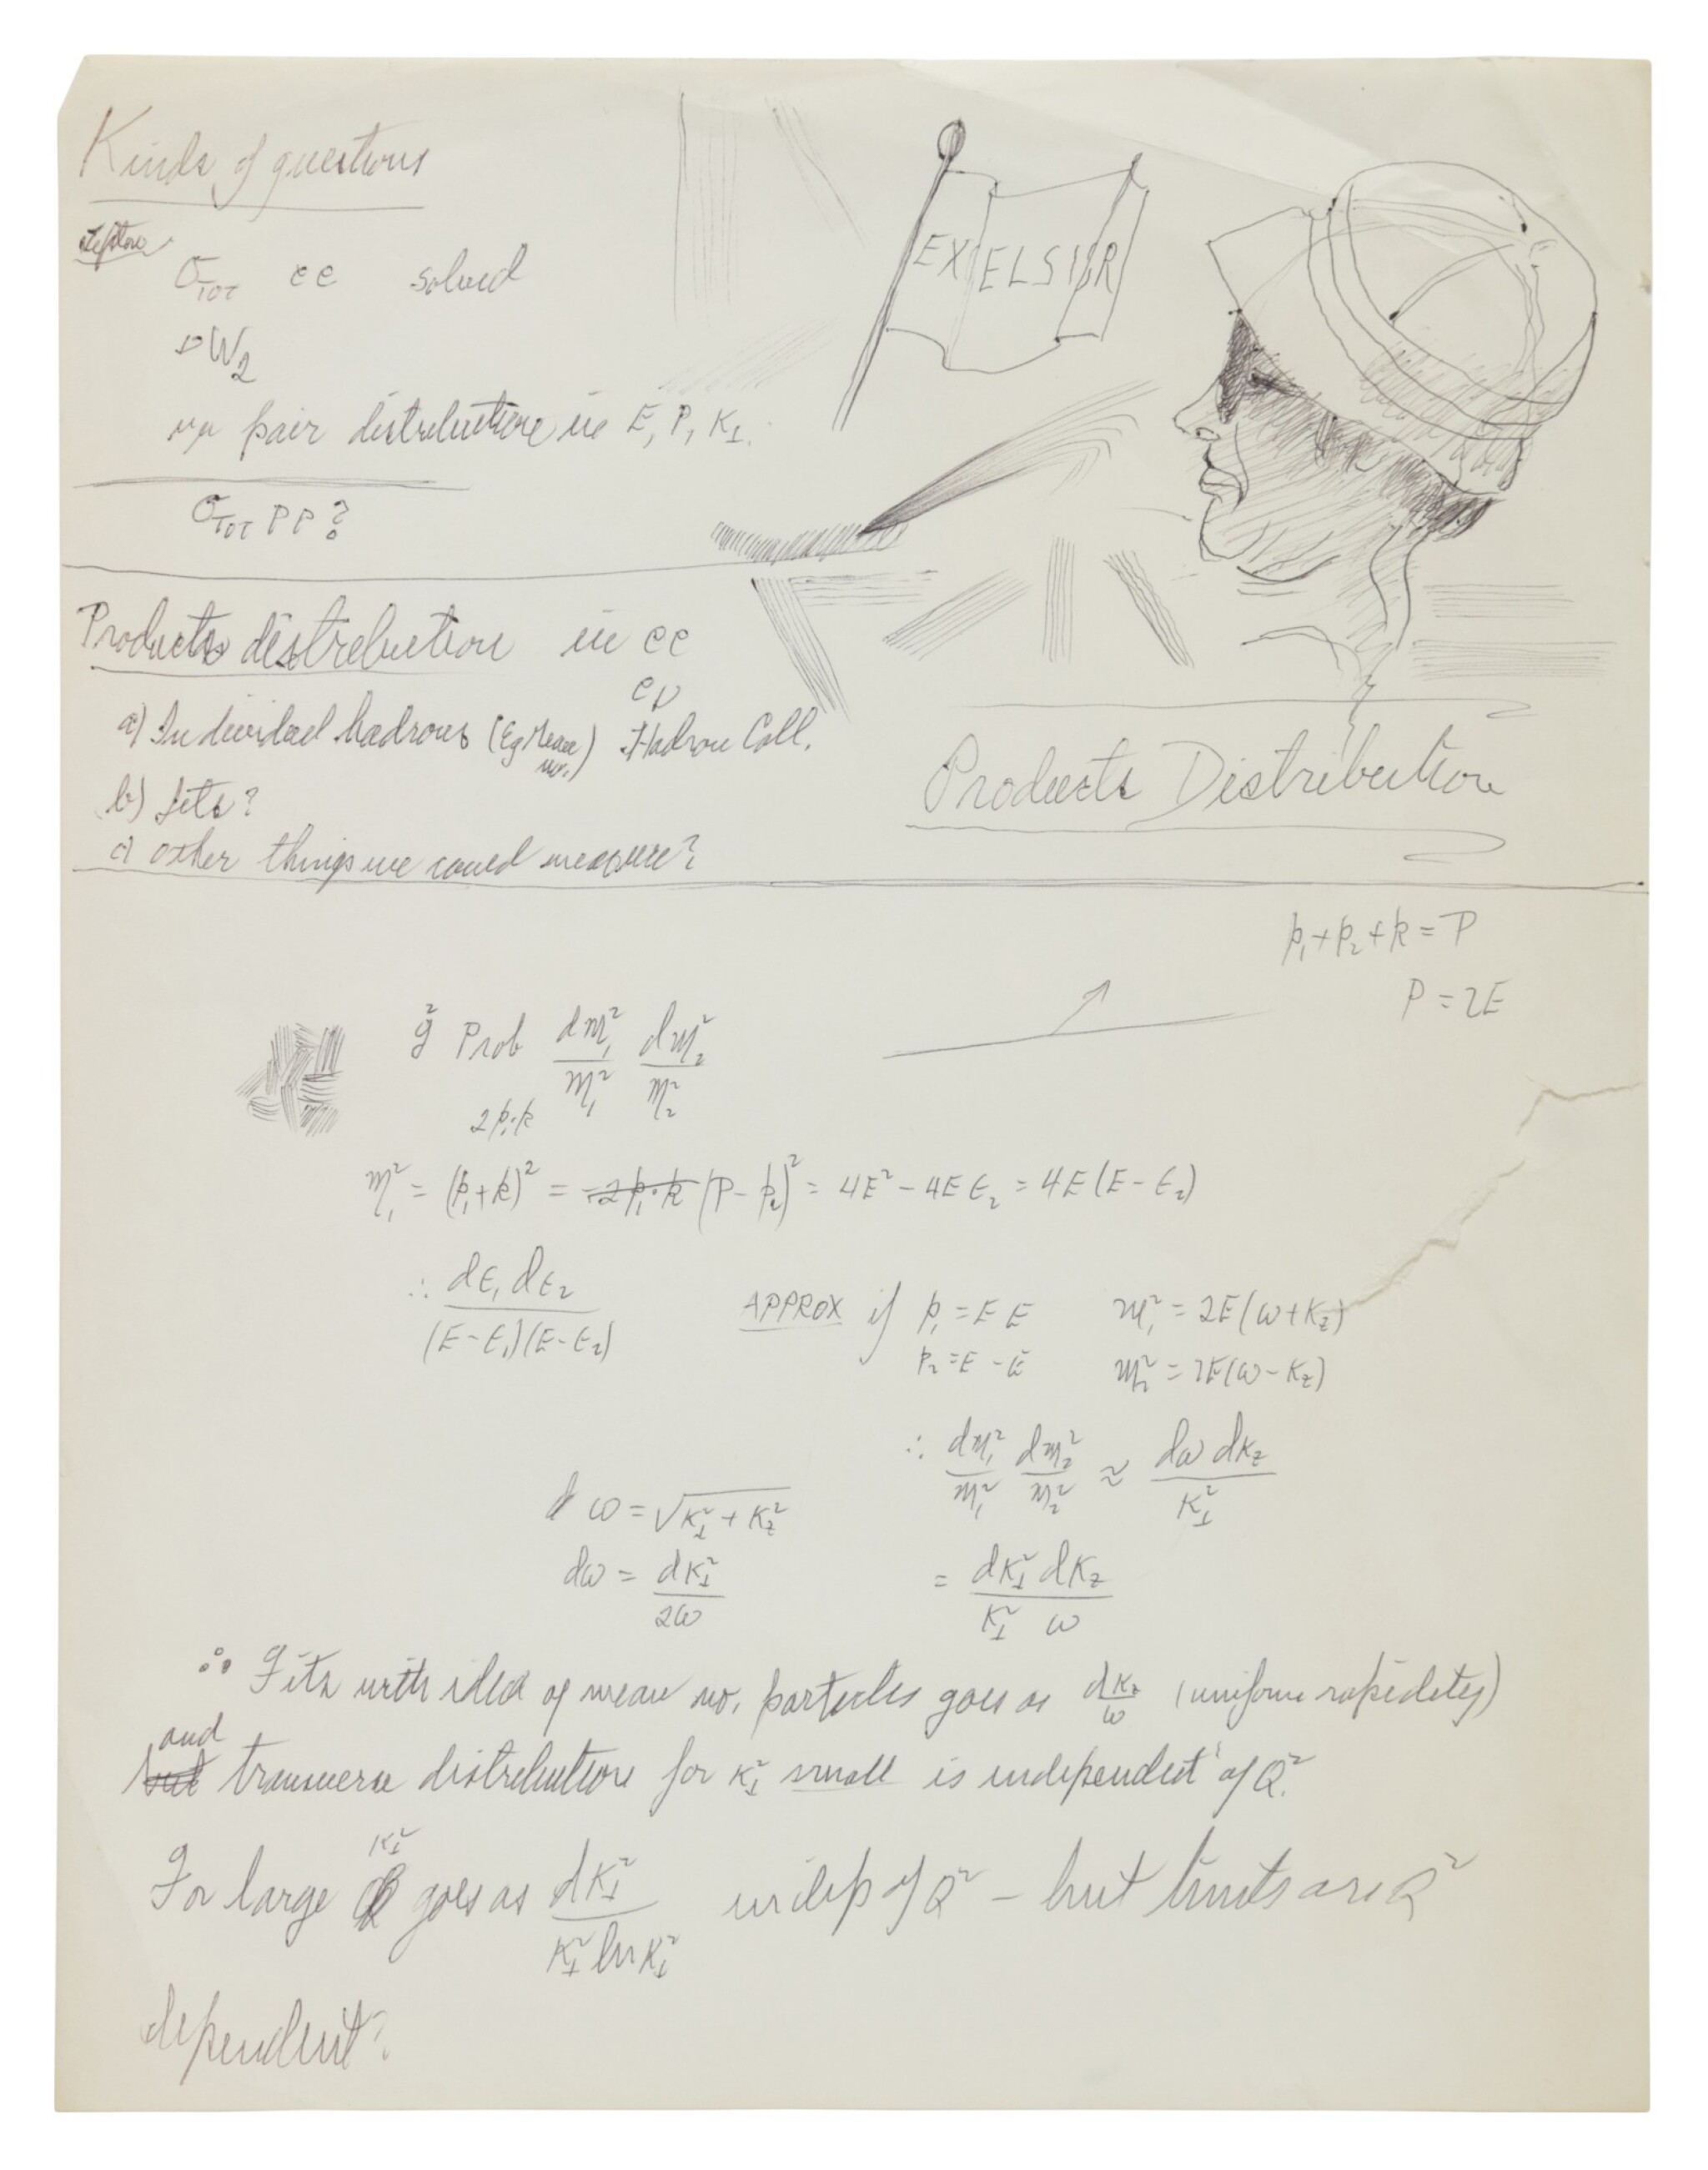 Kinds of questions
σ_TOT ee solved
νW₂
μμ pair distribution in E, P, K⊥.
σ_TOT PP?
EXCELSIOR
Products distribution in ee
eν
a) Individual hadrons (Eg Mean no.) Hadron Coll.
b) Jets?
c) other things we could measure?
Products Distribution
p₁ + p₂ + k = P
P = 2E
g² Prob dm₁²/m₁² dm₂²/m₂²
2p₁·k
m₁² = (p₁+k)² = (P - p₂)² = 4E² - 4Eϵ₂ = 4E(E-ϵ₂)
∴ dϵ₁ dϵ₂ / (E-ϵ₁)(E-ϵ₂)
APPROX if p₁ = E E m₁² = 2E(ω+K_z)
p₂ = E -E m₂² = 2E(ω-K_z)
∴ dm₁²/m₁² dm₂²/m₂² ≈ dω dK_z / K⊥²
ω = √(K⊥² + K_z²)
dω = dK⊥²/2ω = dK⊥² dK_z / K⊥² ω
∴ Fits with idea of mean no. particles goes as dK_z/ω (uniform rapidity)
and
but transverse distribution for K⊥² small is independent of Q².
For large K⊥² goes as dK⊥² / K⊥² ln K⊥² indep of Q² - but limits are Q²
dependent?